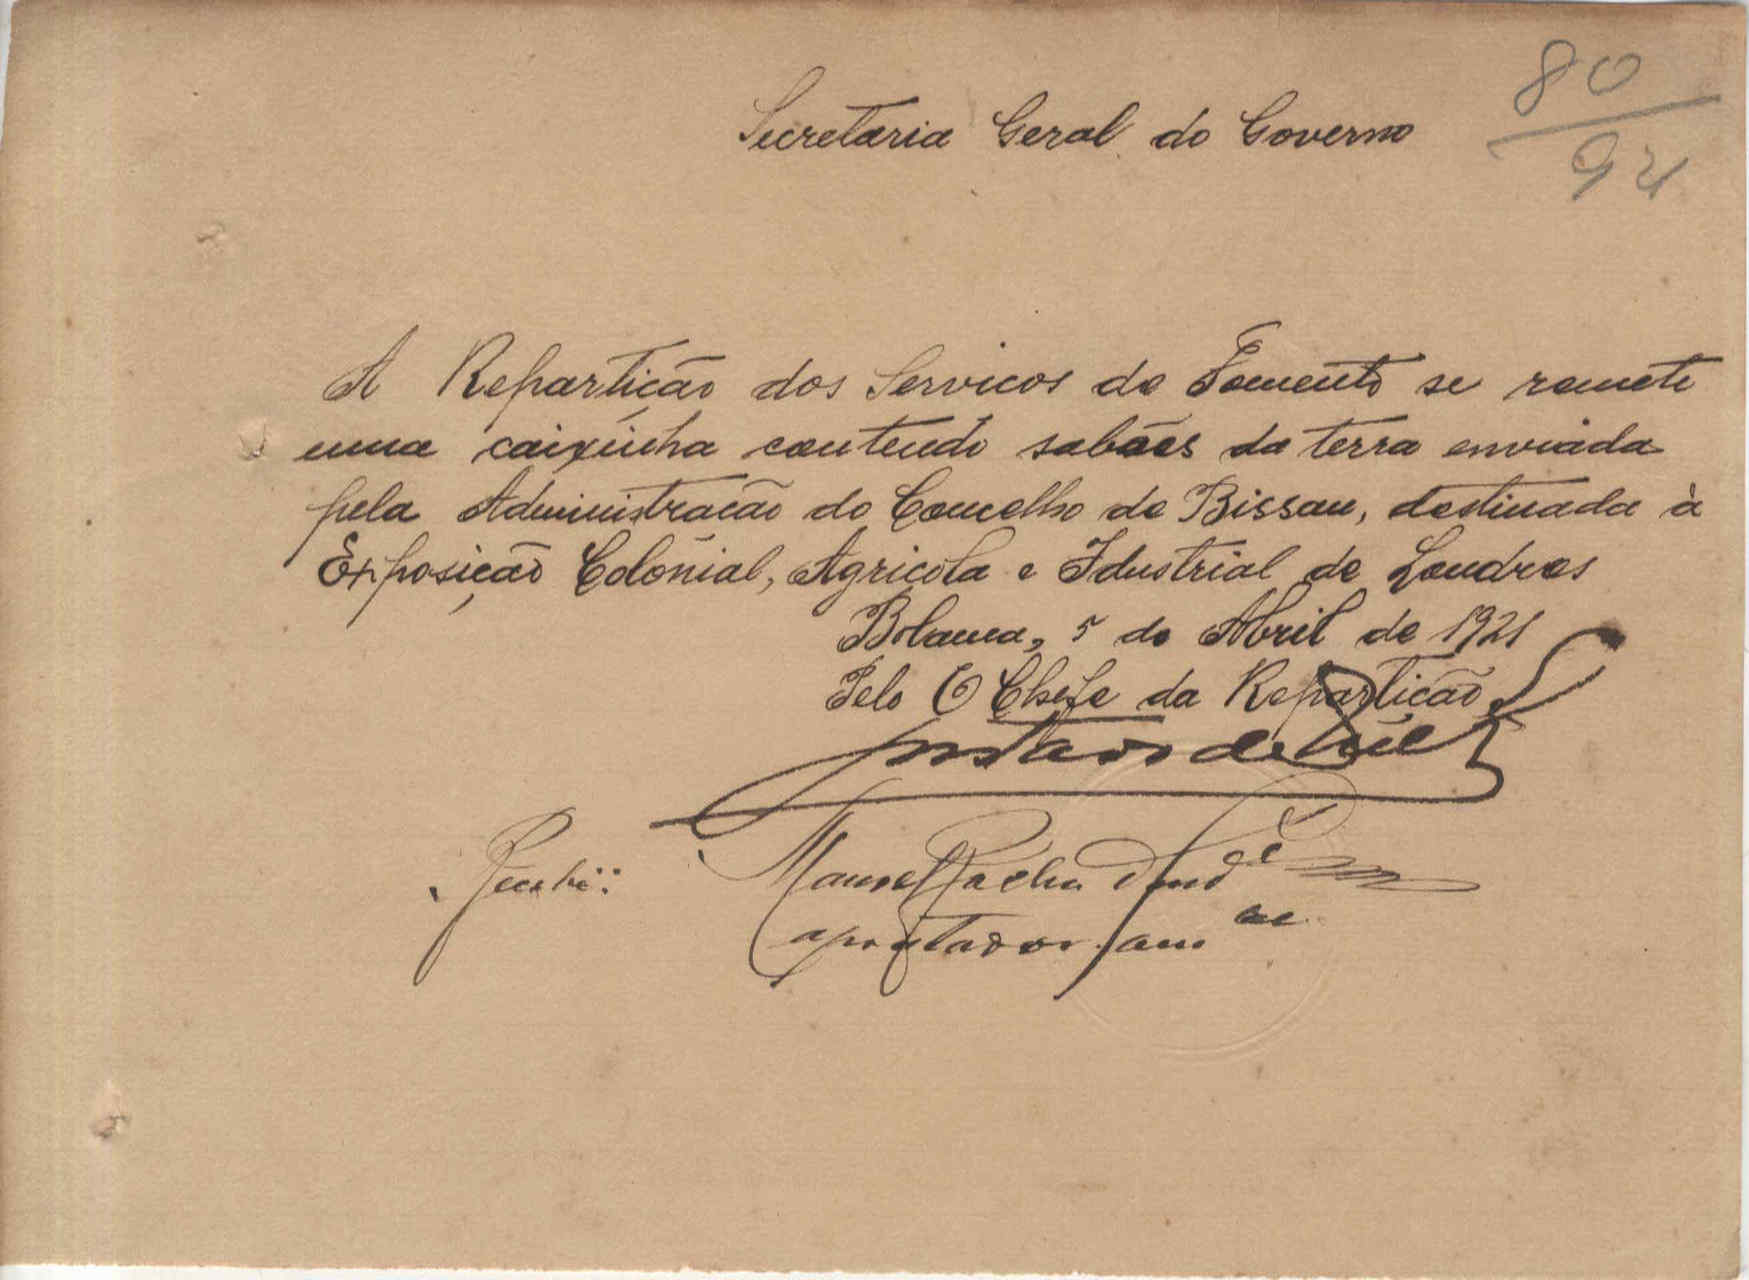 80
94
Secretaria Geral do Governo
A Repartição dos Serviços de Fomento se remete
uma caixinha contendo sabões da terra enviada
pela Administração do Concelho de Bissau, destinada à
Exposição Colonial, Agricola e Idustrial de Londres
Bolama, 5 de Abril de 1921
Pelo O Chefe da Repartição
Recebi:
Manuel
apontador